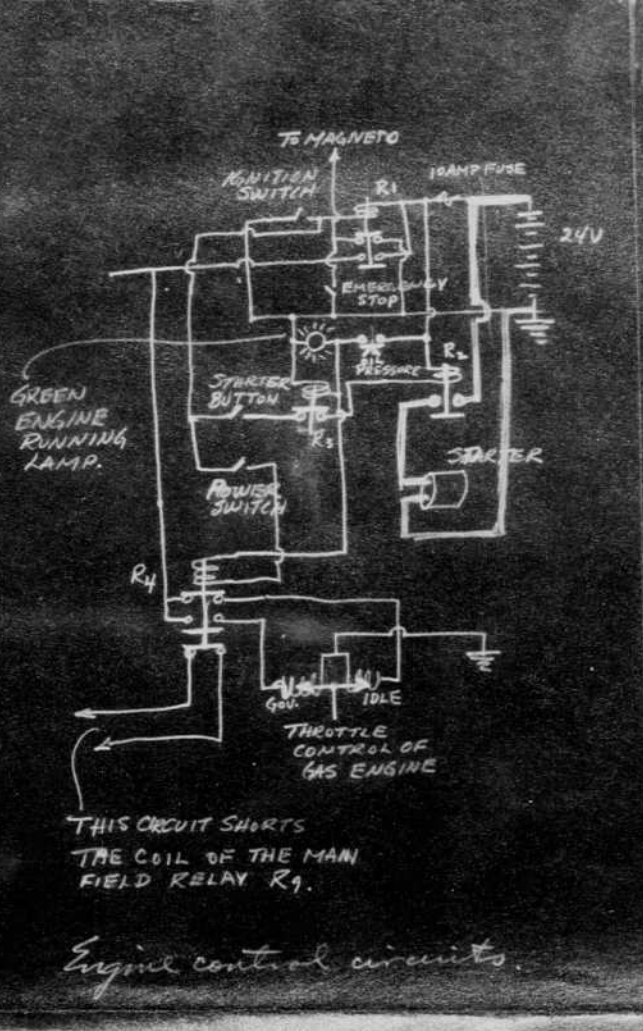 TO MAGNETO
IGNITION
SWITCH
R1
10 AMP FUSE
24V
EMERGENCY
STOP
OIL
PRESSURE
R2
GREEN
ENGINE
RUNNING
LAMP.
STARTER
BUTTON
R3
STARTER
POWER
SWITCH
R4
GOV.
IDLE
THROTTLE
CONTROL OF
GAS ENGINE
THIS CIRCUIT SHORTS
THE COIL OF THE MAIN
FIELD RELAY R9.
Engine control circuits.